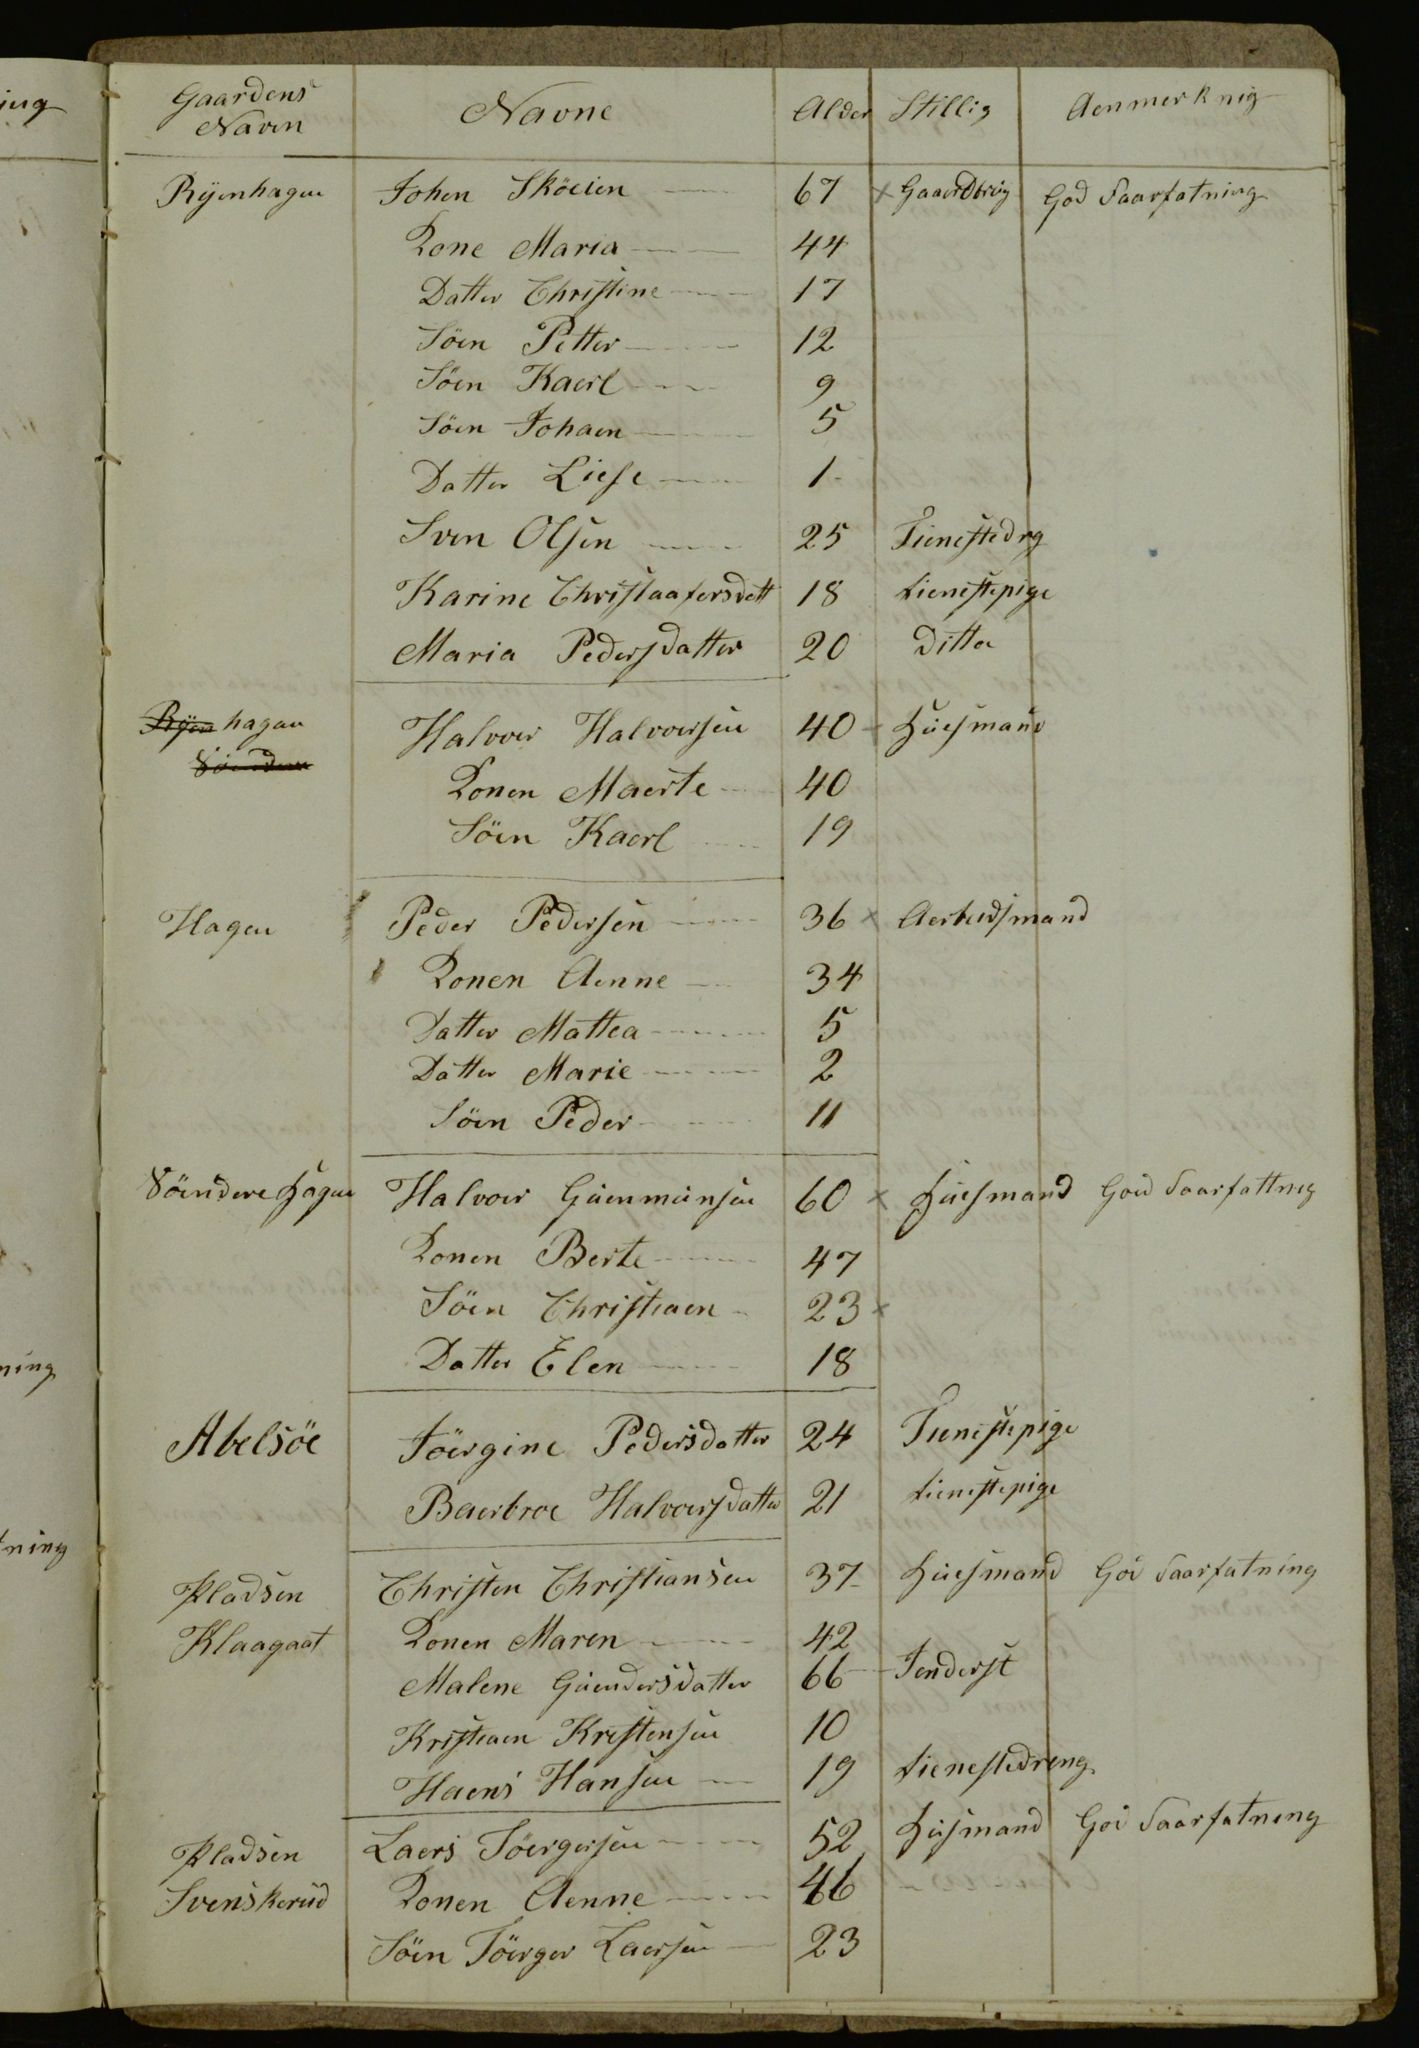 Gaardens Navne Alder Stillig Aenmerknig
Navn
Ryenhagen Johen Sköeien 67 x Gaardbrig God Faarfatning
Kone Maria 44
Datter Christine 17
Söen Petter 12
Söen Kaerl 9
Söen Johaen 5
Datter Liese 1
Sven Olsen 25 Tienestedrg
Karine Christaafersdatt 18 tienestepige
Maria Pedersdatter 20 Ditto
Ryen hagen Halvoer Halvoersen 40 Huesmand
Konen Maerte 40
Söen Kaerl 19
Hagen Peder Pedersen 36 x Aerbeidsmand
Konen Aenne 34
Datter Mattea 5
Datter Marie 2
Söen Peder 11
Söendere Hagen Halvoer Guenmunsen 60 x Huesmand God Faarfattnig
Konen Berte 47
Söen Christiaen 23 x
Datter Elen 18
Abelsöe Jöergine Pedersdatter 24 Tienestepige
Baerbroe Halvoersdatter 21 tienestepige
Pladsen Christen Christiansen 37 Huesmand God Faarfatning
Klaagaat Konen Maren 42
Malene Guendersdatter 66 Jenderst
Kristiaen Kristensen 10
Haens Hansen 19 tienestedreng
Pladsen Laers Jöergersen 52 Husmand God Faarfatning
Svenskerud Konen Aenne 46
Söen Jöerger Laersen 23